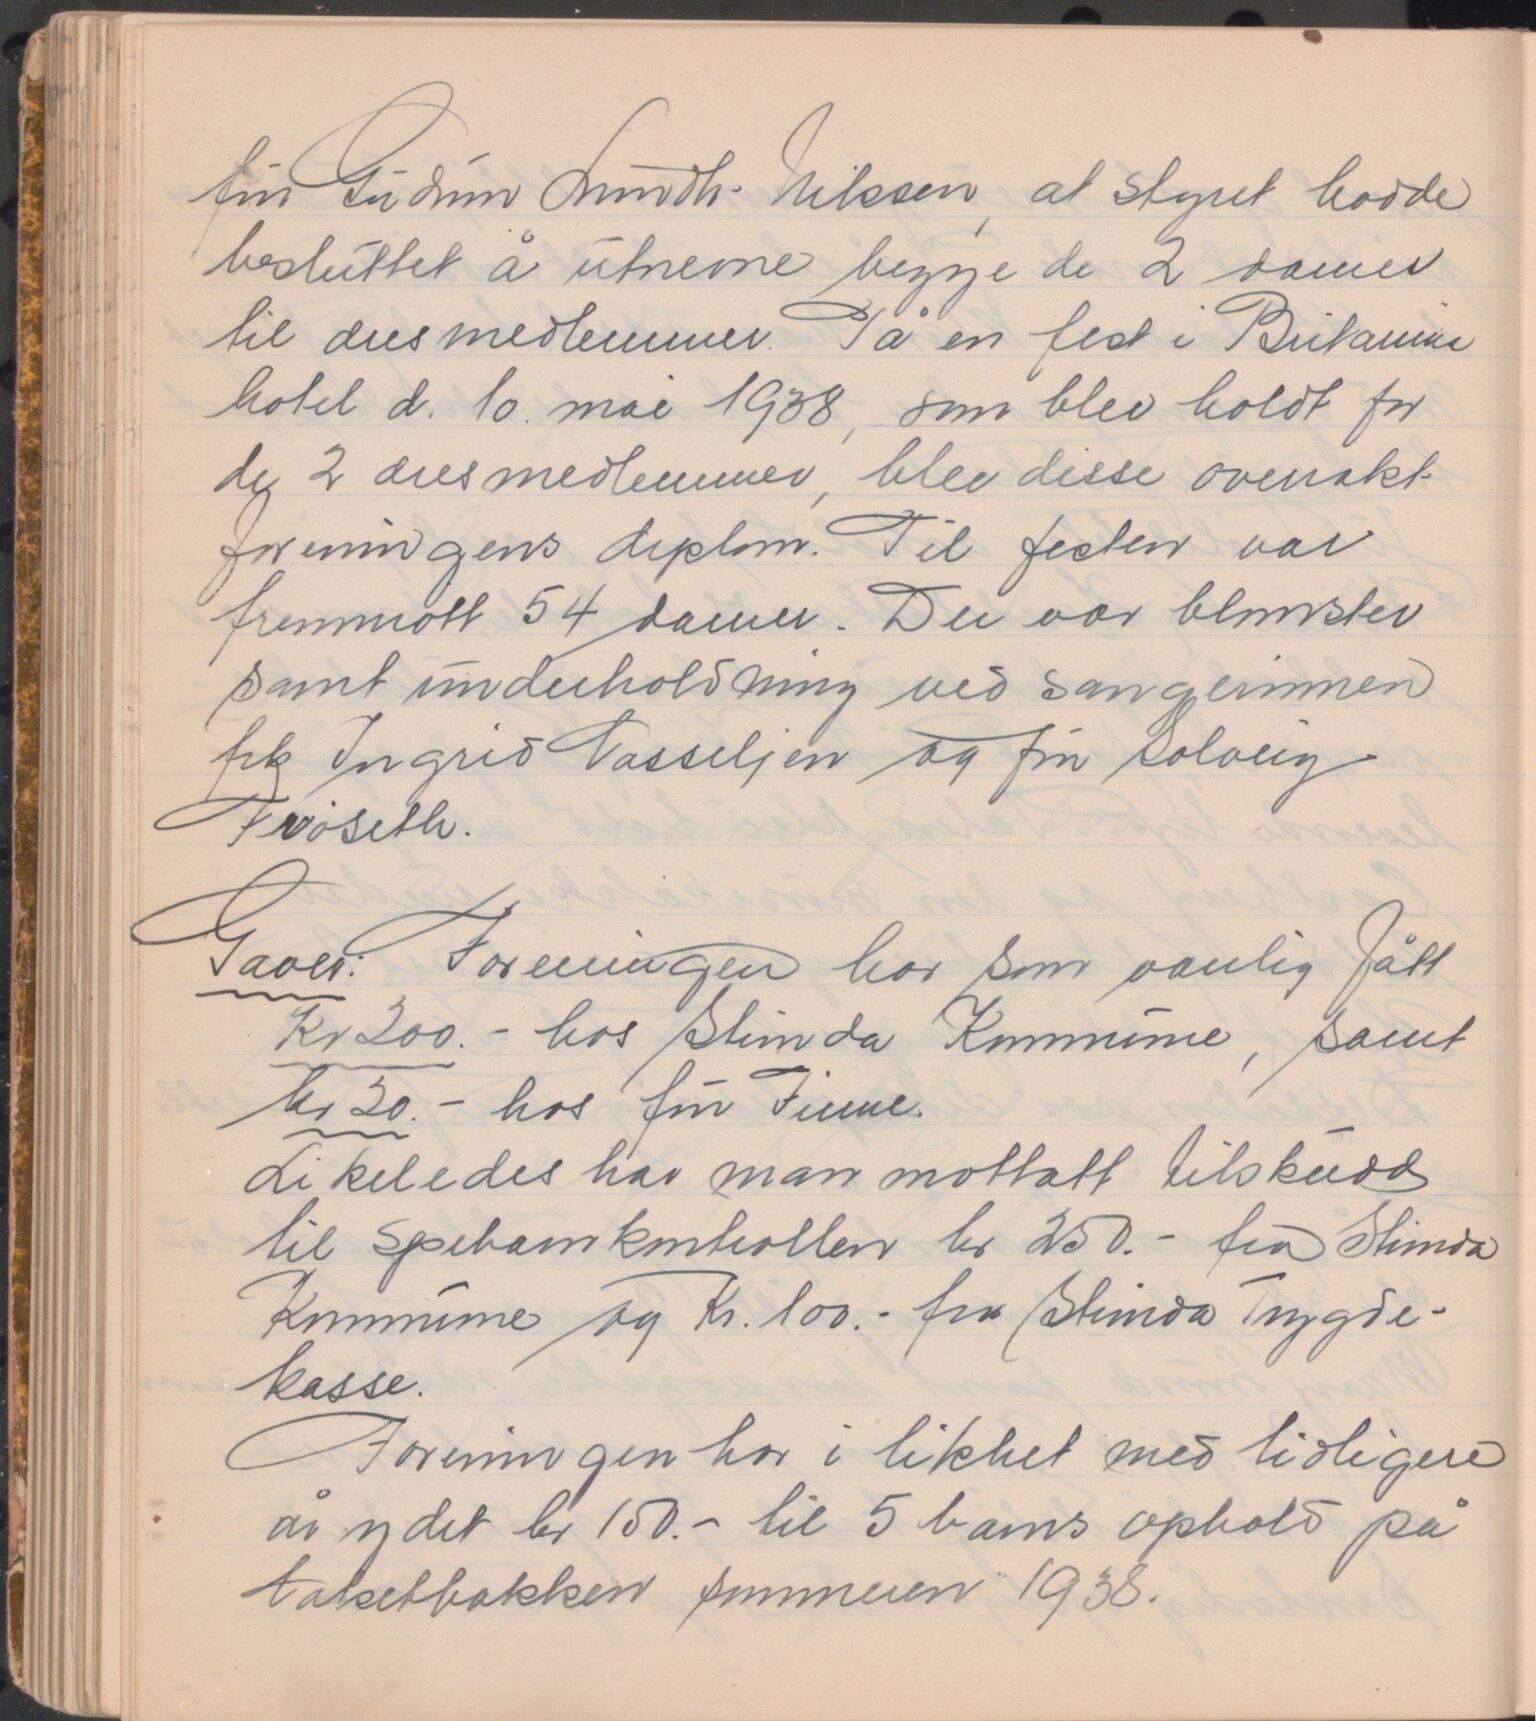 fru Gudrun Lundh-Nilssen, at styret hadde
besluttet å utnevne begge de 2 damer
til æresmedlemmer. På en fest i Britannia
hotel d. 10. mai 1938, som blev holdt for
de 2 æresmedlemmer, blev disse overrakt
foreningens diplom. Til festen var
fremmøtt 54 damer. Der var blomster
samt underholdning ved sangerinnen
frk Ingrid Vasseljen og fru Solveig
Frøseth.
Gaver: Foreningen har som vanlig fått
Kr 200.- hos Strinda Kommune, samt
kr 20.- hos fru Finne.
Likeledes har man mottatt tilskudd
til spebarnkontrollen kr 250.- fra Strinda
Kommune og Kr. 100.- fra Strinda Trygde-
kasse.
Foreningen har i likhet med tidligere
år ydet kr 150.- til 5 barns ophold på
sommeren 1938.